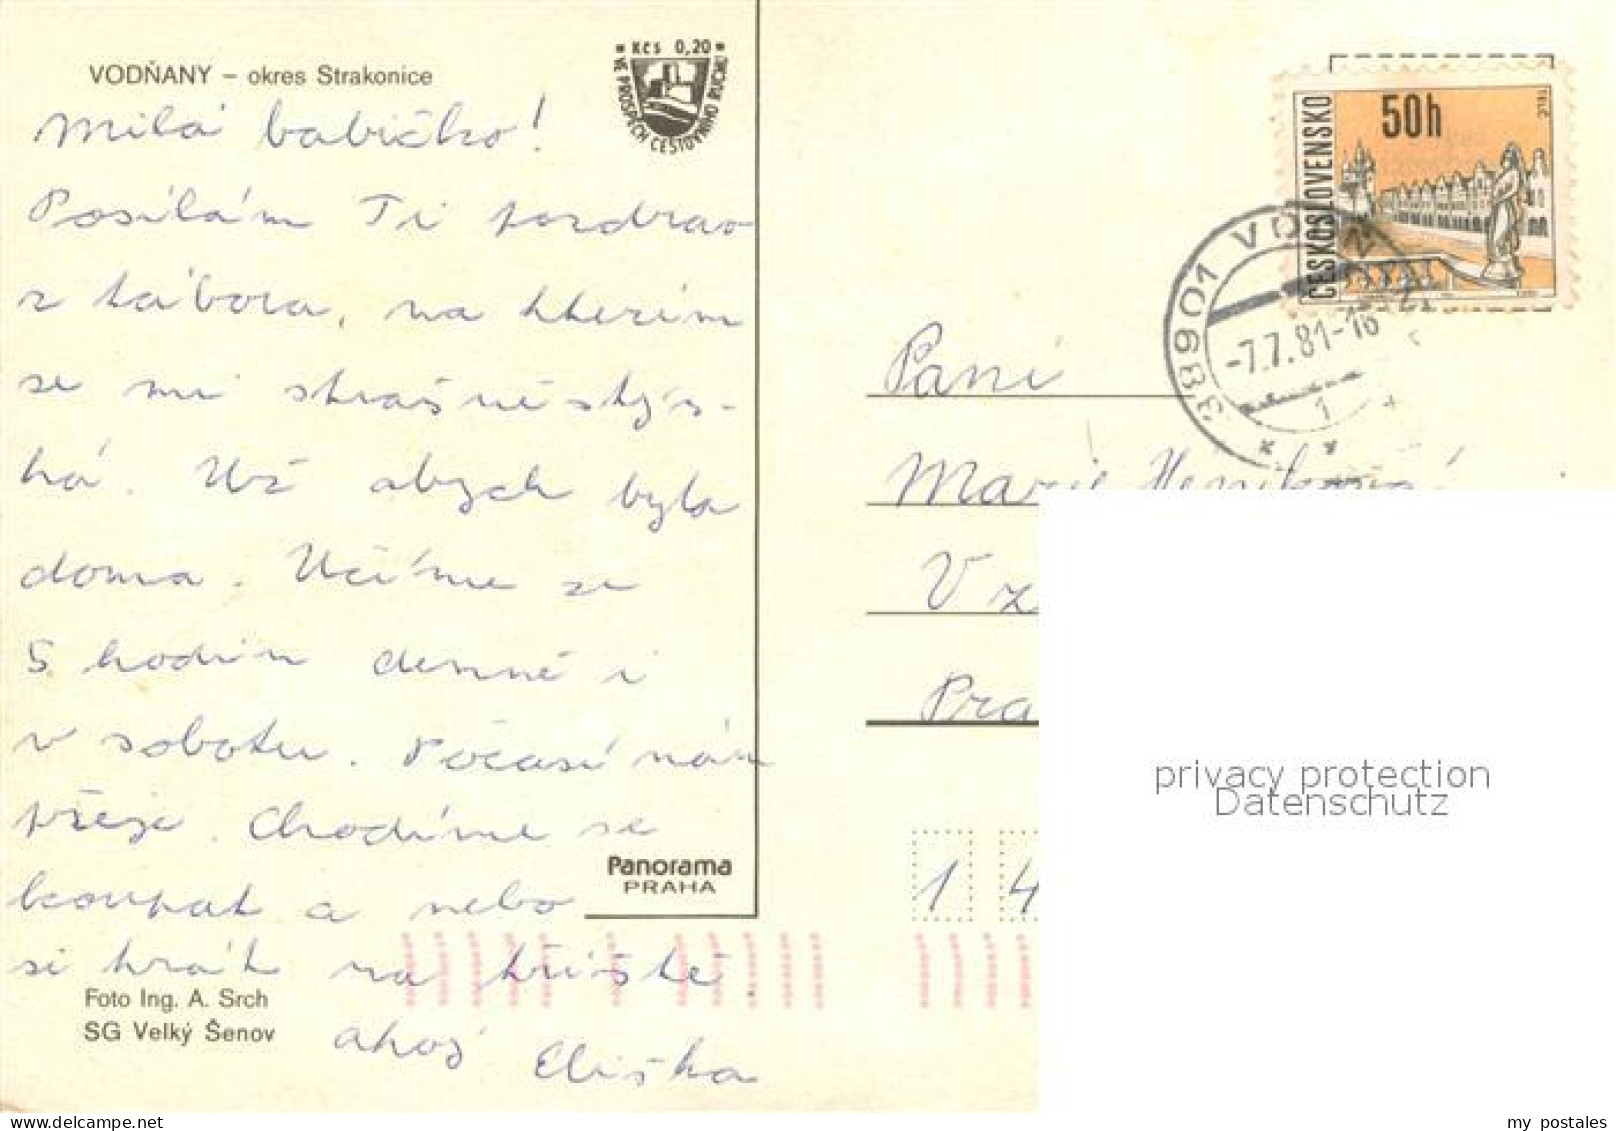 VODŇANY – okres Strakonice
Kčs 0,20
VE PROSPĚCH CESTOVNÍHO RUCHU
Milá babičko!
Posílám Ti pozdrav
z tábora, na kterém
se mi strašně stýs-
ká. Už abych byla
doma. Učíme se
5 hodin denně i
v sobotu. Počasí nám
přeje. Chodíme se
koupat a nebo
si hrát na hřiště
ahoj Eliška
Foto Ing. A. Srch
SG Velký Šenov
Panorama
PRAHA
ČESKOSLOVENSKO
50h
TELČ
38901 VODŇANY
-7.7.81-16
1
Paní
Marie
V
Pra
1 4
privacy protection
Datenschutz
my postales